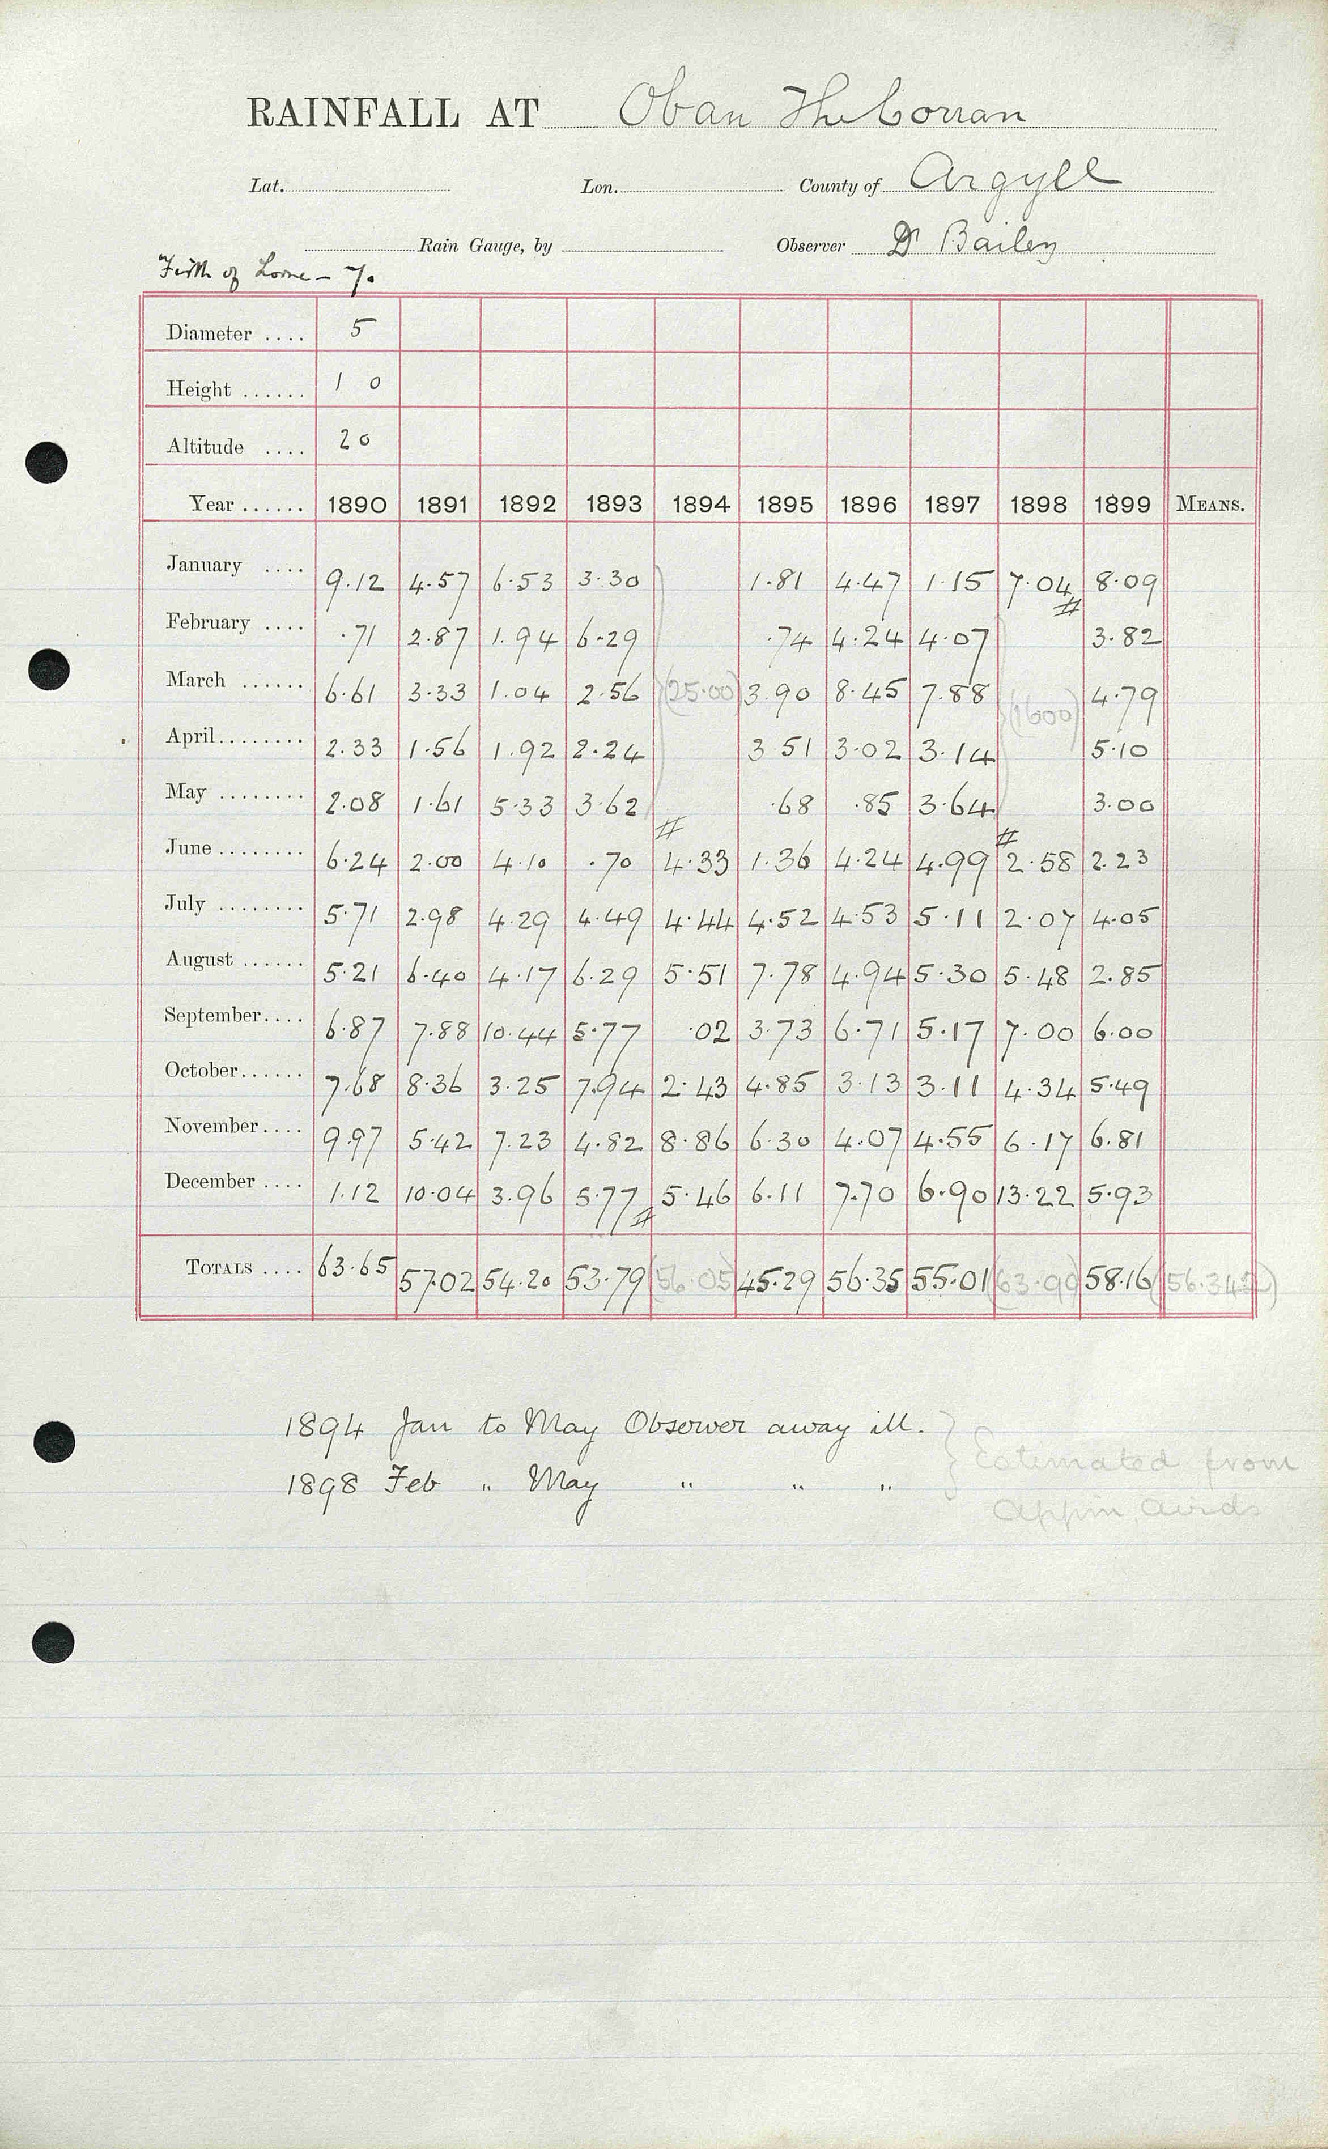 RAINFALL AT Oban The Corran
Lat. Lon. County of Argyll
Rain Gauge, by Observer Dr Bailey
Firth of Lorne - 7.
Diameter .... 5
Height ...... 1 0
Altitude .... 20
Year ...... 1890 1891 1892 1893 1894 1895 1896 1897 1898 1899 MEANS.
January .... 9.12 4.57 6.53 3.30 1.81 4.47 1.15 7.04 8.09
February .... .71 2.87 1.94 6.29 .74 4.24 4.07 3.82
March ...... 6.61 3.33 1.04 2.56 (25.00) 3.90 8.45 7.88 (1600) 4.79
April........ 2.33 1.56 1.92 2.24 3 51 3.02 3.14 5.10
May ........ 2.08 1.61 5.33 3.62 .68 .85 3.64 3.00
June ........ 6.24 2.00 4.10 .70 4.33 1.36 4.24 4.99 2.58 2.23
July ........ 5.71 2.98 4.29 4.49 4.44 4.52 4.53 5.11 2.07 4.05
August ...... 5.21 6.40 4.17 6.29 5.51 7.78 4.94 5.30 5.48 2.85
September.... 6.87 7.88 10.44 5.77 .02 3.73 6.71 5.17 7.00 6.00
October...... 7.68 8.36 3.25 7.94 2.43 4.85 3.13 3.11 4.34 5.49
November.... 9.97 5.42 7.23 4.82 8.86 6.30 4.07 4.55 6.17 6.81
December .... 1.12 10.04 3.96 5.77 5.46 6.11 7.70 6.90 13.22 5.93
TOTALS .... 63.65 57.02 54.20 53.79 (56.05) 45.29 56.35 55.01 (63.90) 58.16 (56.342)
1894 Jan to May Observer away ill.
1898 Feb " May " " "
Estimated from
Appin, Airds